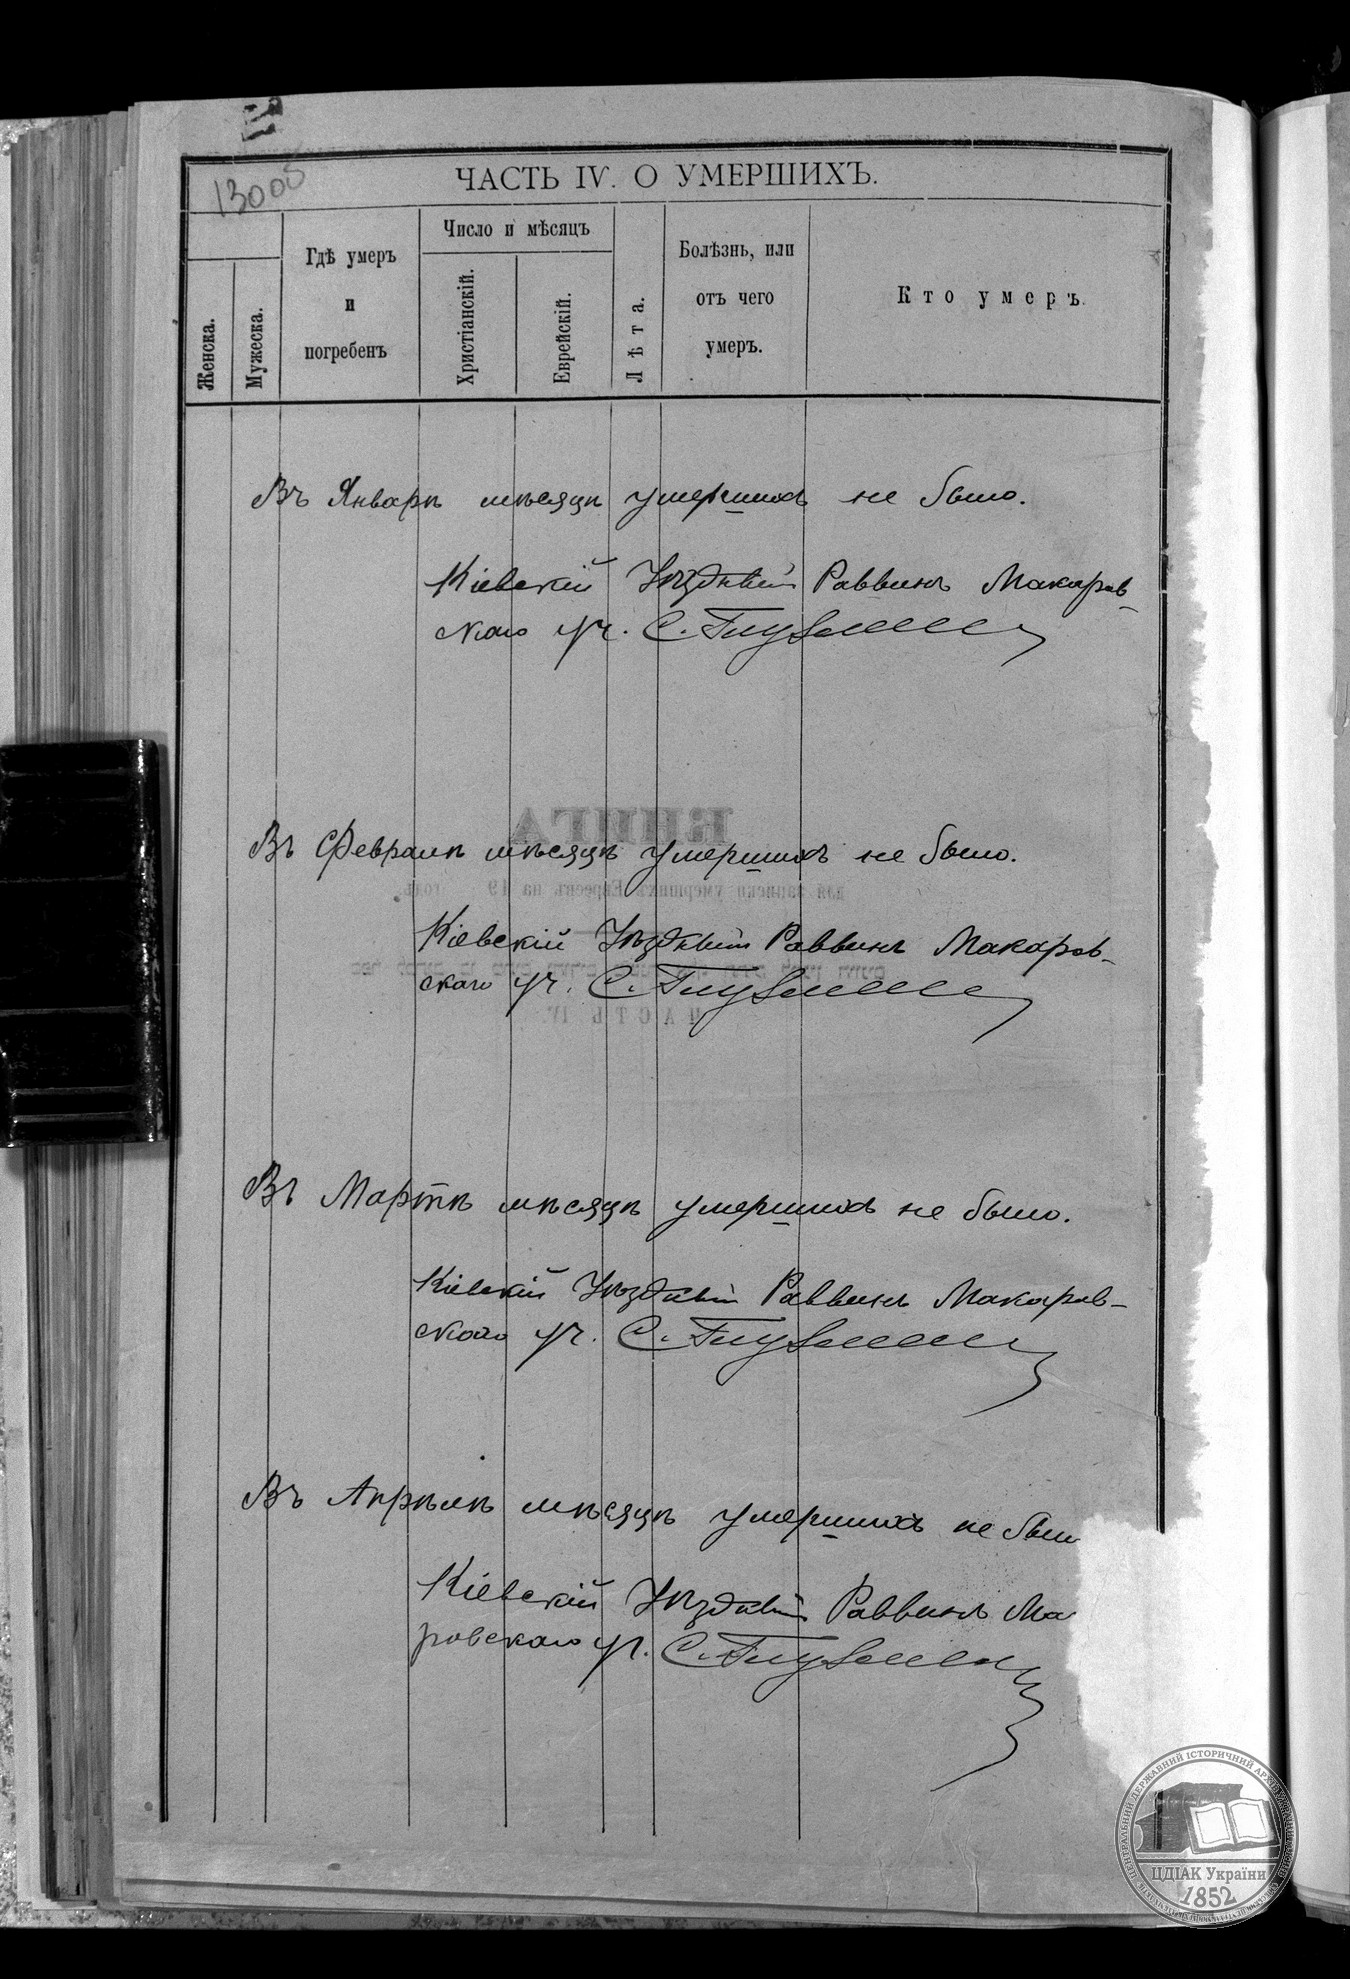 ЧАСТЬ IV. О УМЕРШИХЪ.
Женска.
Мужеска.
Гдѣ умеръ
и
погребенъ
Число и мѣсяцъ
Христіанскій.
Еврейскій.
Лѣта.
Болѣзнь, или
отъ чего
умеръ.
Кто умеръ
Въ Январѣ мѣсяцѣ умершихъ не было.
Кіевскій Уѣздный Раввинъ Макаров-
скаго уч.
КНИГА
для записки умершихъ Евреевъ на 19 годъ
ЧАСТЬ IV.
Въ Февралѣ мѣсяцѣ умершихъ не было.
Кіевскій Уѣздный Раввинъ Макаров-
скаго уч.
Въ Мартѣ мѣсяцѣ умершихъ не было.
Кіевскій Уѣздный Раввинъ Макаров-
скаго уч.
Въ Апрѣлѣ мѣсяцѣ умершихъ не был
Кіевскій Уѣздный Раввинъ Ма
ровскаго уч.
ЦЕНТРАЛЬНИЙ ДЕРЖАВНИЙ ІСТОРИЧНИЙ АРХІВ УКРАЇНИ
ЦДІАК України
1852